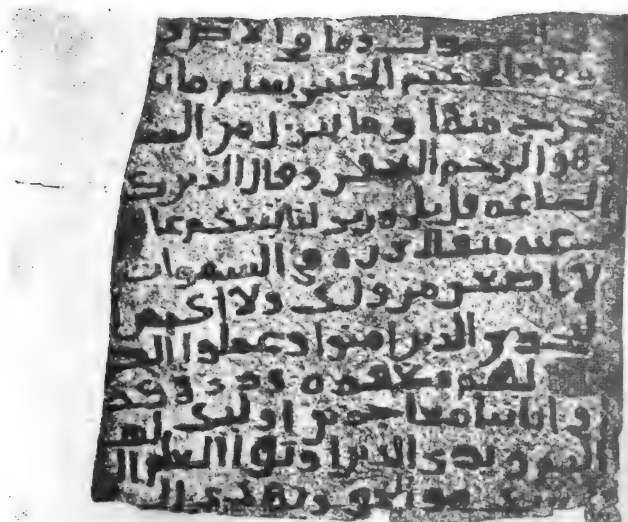 وما في الارض
وهو الحكيم الخبير يعلم ما
يخرج منها وما ينزل من السـ
هو الرحيم الغفور وقال الذين ك
الساعه قل بلى وربي لتاتينكم عا
عنه مثقال ذره في السموات
لا اصغر من ذلك ولا اكبر
ليجزي الذين امنوا وعملوا الصـ
لهم مغفره ورزق كر
في ايتنا معاجزين اولئك لهم
اليم ويرى الذين اوتوا العلم ال
هو الحق ويهدي الى